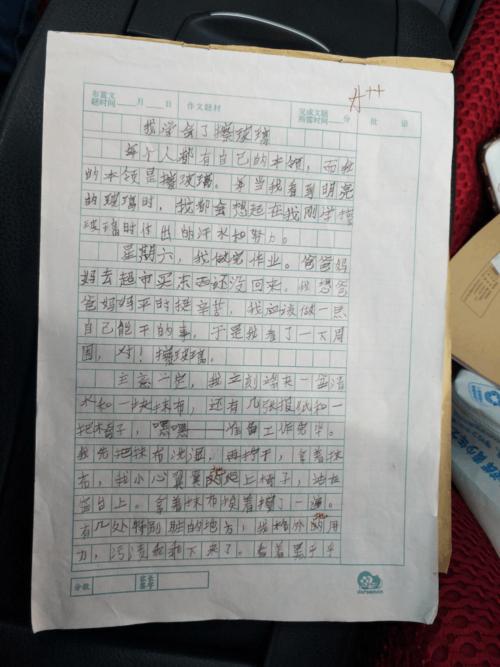 A++
布置文题时间 月 日 作文题材 完成文题所需时间 分 批语
我学会了擦玻璃
每个人都有自己的本领，而我
的本领是擦玻璃。每当我看到明亮
的玻璃时，我都会想起在我刚学擦
玻璃时付出的汗水和努力。
星期六，我做完作业。爸爸妈
妈去超市买东西还没回来，我想爸
爸妈妈平时挺辛苦，我应该做一点
自己能干的事，于是我看了一下周
围，对！擦玻璃。
主意一定，我立刻端来一盆清
水和一块抹布，还有几张报纸和一
把木椅子，嘿嘿——准备工作完毕。
我先把抹布洗湿，再拧干，拿着抹
布，我小心翼翼地爬上椅子，站在
窗台上。拿着抹布横着擦了一遍。
有几处特别脏的地方，我格外地用
力，污渍都擦下来了。看着黑乎乎
分数